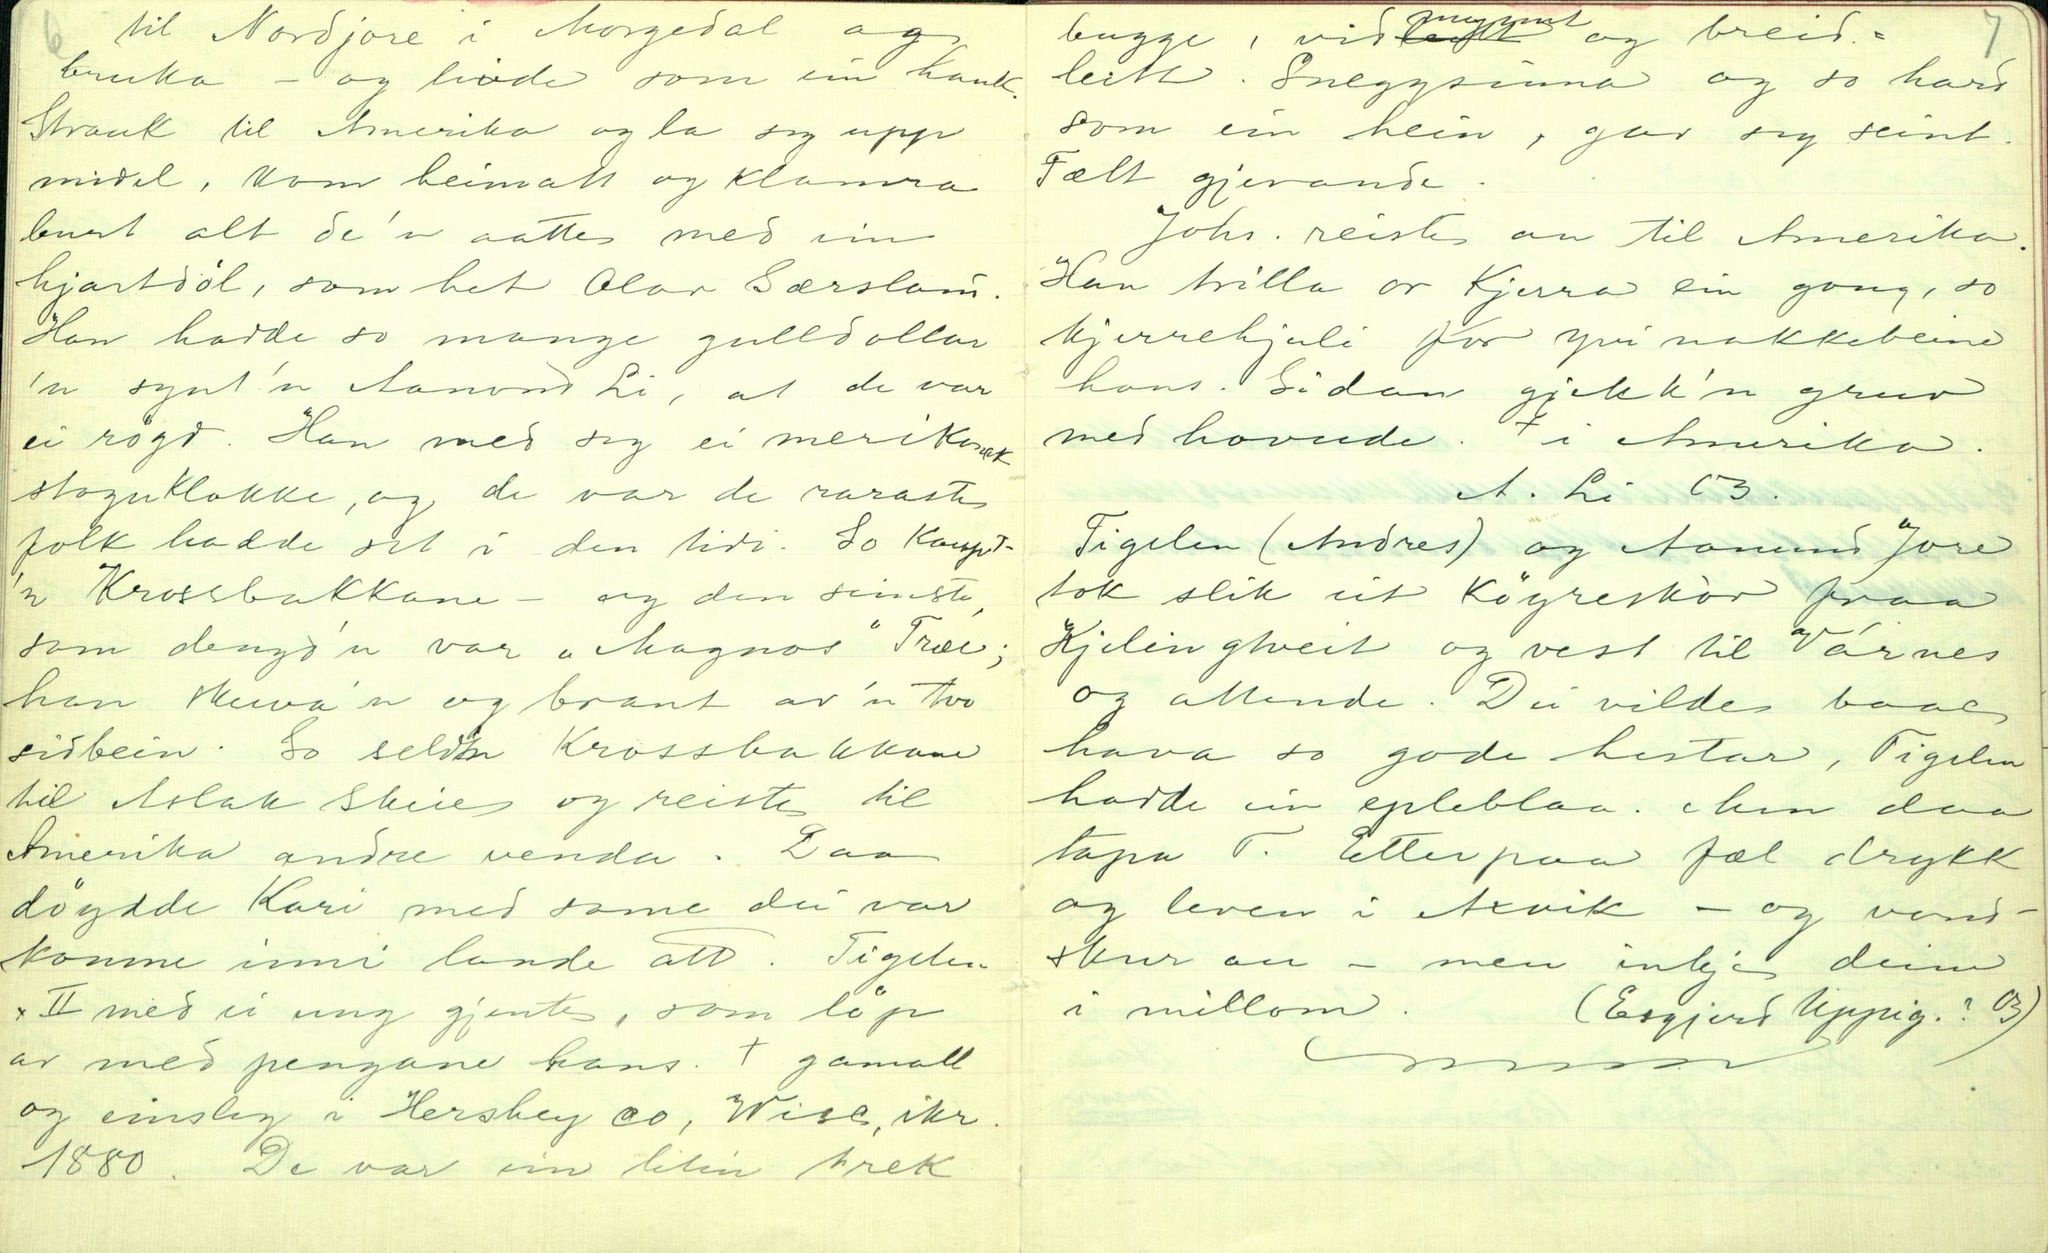 6
til Nordjore i Morgedal og
bruka - og livde som ein hauk.
Strauk til Amerika og la seg upp
midel, kom heimatt og klamra
burt alt de'n aatte med ein
hjartdöl, som het Olav Særsland.
Han hadde so mange gulldollar
'n synt'n Aanond Li, at de var
ei rögd. Han med seg ei merikansk
stoguklokke, og de var de raraste
folk hadde set i den tidi. So kaupt-
'n Krossbakkane - og den simste,
som dengd'n var "Magnos" Træe;
han skuva'n og braut av'n tvo
sidbein. So seld'n Krossbakkane
til Aslak Skeie og reiste til
Amerika andre venda. Daa
döydde Kari med same dei var
komne inni lande att. Tigelen
x II med ei ung gjente, som löp
av med pengane hans. † gamall
og einsleg i Hershey co, Wisc, ikr.
1880. De var ein liten trek
7
bugge, vidmynnt og breid-
leitt. Sneggsinna og so hard
som ein hein, gav seg seint.
Fælt gjevande.
Johs. reiste au til Amerika.
Han trilla or kjerra ein gong, so
kjerrehjuli for yvi nakkebeine
hans. Sidan gjekk'n gruv
med hovude. † i Amerika.
A. Li 03.
Tigelen (Andres) og Aanund Jore
tok slik ut köyreskòr fraa
Kjelingtveit og vest til Várnes
og attende. Dei vilde baae
hava so gode hestar, Tigelen
hadde ein epleblaa. Men daa
tapa T. Etterpaa fæl drykk
og leven i Axvik - og vond-
skur au - men inkje deim
i millom. (Eigjerd Uppig.? 03)